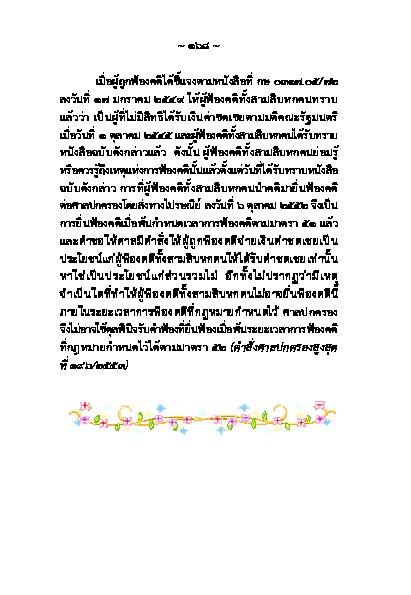 ~ ๑๖๘ ~
เมื่อผู้ถูกฟ้องคดีได้ชี้แจงตามหนังสือที่ กษ ๐๓๑๗.๐๕/๗๒
ลงวันที่ ๑๗ มกราคม ๒๕๔๙ ให้ผู้ฟ้องคดีทั้งสามสิบหกคนทราบ
แล้วว่า เป็นผู้ที่ไม่มีสิทธิได้รับเงินค่าชดเชยตามมติคณะรัฐมนตรี
เมื่อวันที่ ๑ ตุลาคม ๒๕๔๕ และผู้ฟ้องคดีทั้งสามสิบหกคนได้รับทราบ
หนังสือฉบับดังกล่าวแล้ว ดังนั้น ผู้ฟ้องคดีทั้งสามสิบหกคนย่อมรู้
หรือควรรู้ถึงเหตุแห่งการฟ้องคดีนั้นแล้วตั้งแต่วันที่ได้รับทราบหนังสือ
ฉบับดังกล่าว การที่ผู้ฟ้องคดีทั้งสามสิบหกคนนำคดีมายื่นฟ้องคดี
ต่อศาลปกครองโดยส่งทางไปรษณีย์ ลงวันที่ ๖ ตุลาคม ๒๕๕๒ จึงเป็น
การยื่นฟ้องคดีเมื่อพ้นกำหนดเวลาการฟ้องคดีตามมาตรา ๕๑ แล้ว
และคำขอให้ศาลมีคำสั่งให้ผู้ถูกฟ้องคดีจ่ายเงินค่าชดเชยเป็น
ประโยชน์แก่ผู้ฟ้องคดีทั้งสามสิบหกคนให้ได้รับค่าชดเชยเท่านั้น
หาใช่เป็นประโยชน์แก่ส่วนรวมไม่ อีกทั้งไม่ปรากฏว่ามีเหตุ
จำเป็นใดที่ทำให้ผู้ฟ้องคดีทั้งสามสิบหกคนไม่อาจยื่นฟ้องคดีนี้
ภายในระยะเวลาการฟ้องคดีที่กฎหมายกำหนดไว้ ศาลปกครอง
จึงไม่อาจใช้ดุลพินิจรับคำฟ้องที่ยื่นฟ้องเมื่อพ้นระยะเวลาการฟ้องคดี
ที่กฎหมายกำหนดไว้ได้ตามมาตรา ๕๒ (คำสั่งศาลปกครองสูงสุด
ที่ ๑๙๖/๒๕๕๓)